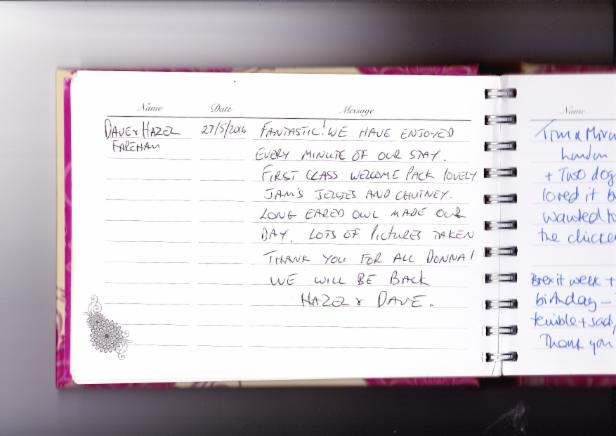 Name Date Message
DAVE & HAZEL 27/5/2016 FANTASTIC! WE HAVE ENJOYED
FAREHAM
EVERY MINUTE OF OUR STAY.
FIRST CLASS WELCOME PACK LOVELY
JAM'S JELLIES AND CHUTNEY.
LONG EARED OWL MADE OUR
DAY. LOTS OF PICTURES TAKEN
THANK YOU FOR ALL DONNA!
WE WILL BE BACK
HAZEL & DAVE.
Name
Tim &
London
+ Two dog
loved it b
wanted to
the chicke
Brexit week +
birthday –
terrible + sad,
Thank you